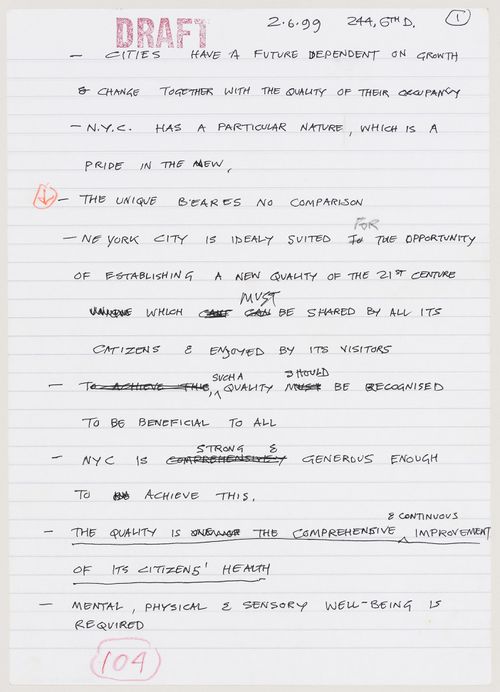 DRAFT 2.6.99 244, 6TH D. 1
– CITIES HAVE A FUTURE DEPENDENT ON GROWTH
& CHANGE TOGETHER WITH THE QUALITY OF THEIR OCCUPANCY
– N.Y.C. HAS A PARTICULAR NATURE, WHICH IS A
PRIDE IN THE NEW,
– THE UNIQUE BEARES NO COMPARISON
FOR
– NE YORK CITY IS IDEALY SUITED TO THE OPPORTUNITY
OF ESTABLISHING A NEW QUALITY OF THE 21ST CENTURE
MUST
UNIQUE WHICH CAN BE SHARED BY ALL ITS
CITIZENS & ENJOYED BY ITS VISITORS
SUCH A SHOULD
– TO ACHIEVE THIS, QUALITY MUST BE RECOGNISED
TO BE BENEFICIAL TO ALL
STRONG &
– NYC IS COMPREHENSIVELY GENEROUS ENOUGH
TO ACHIEVE THIS.
& CONTINUOUS
– THE QUALITY IS THE COMPREHENSIVE IMPROVEMENT
OF ITS CITIZENS' HEALTH
– MENTAL, PHYSICAL & SENSORY WELL-BEING IS
REQUIRED
104